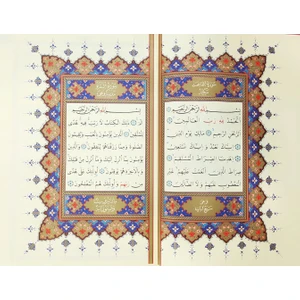 بِسْمِ اللهِ الرَّحْمٰنِ الرَّحِيمِ
اَلْحَمْدُ لِلهِ رَبِّ الْعَالَمِينَ
اَلرَّحْمٰنِ الرَّحِيمِ مَالِكِ يَوْمِ
الدِّينِ اِيَّاكَ نَعْبُدُ وَاِيَّاكَ
نَسْتَعِينُ اِهْدِنَا الصِّرَاطَ الْمُسْتَقِيمَ
صِرَاطَ الَّذِينَ اَنْعَمْتَ عَلَيْهِمْ غَيْرِ
الْمَغْضُوبِ عَلَيْهِمْ وَلَا الضَّالِّينَ
بِسْمِ اللهِ الرَّحْمٰنِ الرَّحِيمِ
الٓمٓ ذٰلِكَ الْكِتَابُ لَا رَيْبَ فِيهِ هُدًى
لِلْمُتَّقِينَ اَلَّذِينَ يُؤْمِنُونَ بِالْغَيْبِ وَيُقِيمُونَ
الصَّلٰوةَ وَمِمَّا رَزَقْنَاهُمْ يُنْفِقُونَ وَالَّذِينَ
يُؤْمِنُونَ بِمَا اُنْزِلَ اِلَيْكَ وَمَا اُنْزِلَ مِنْ قَبْلِكَ
وَبِالْاٰخِرَةِ هُمْ يُوقِنُونَ اُولٰئِكَ عَلٰى هُدًى
مِنْ رَبِّهِمْ وَاُولٰئِكَ هُمُ الْمُفْلِحُونَ